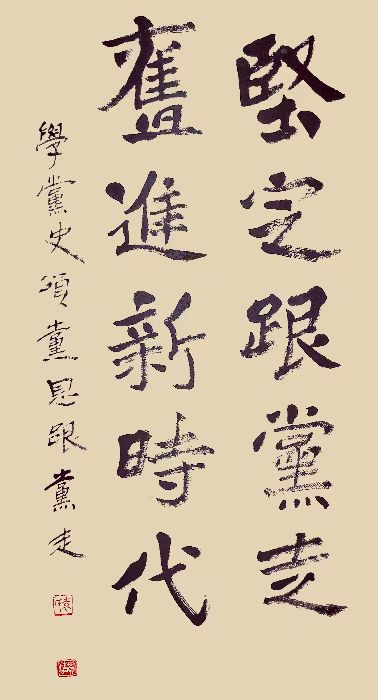 堅定跟黨走
奮進新時代
學黨史頌黨恩跟黨走